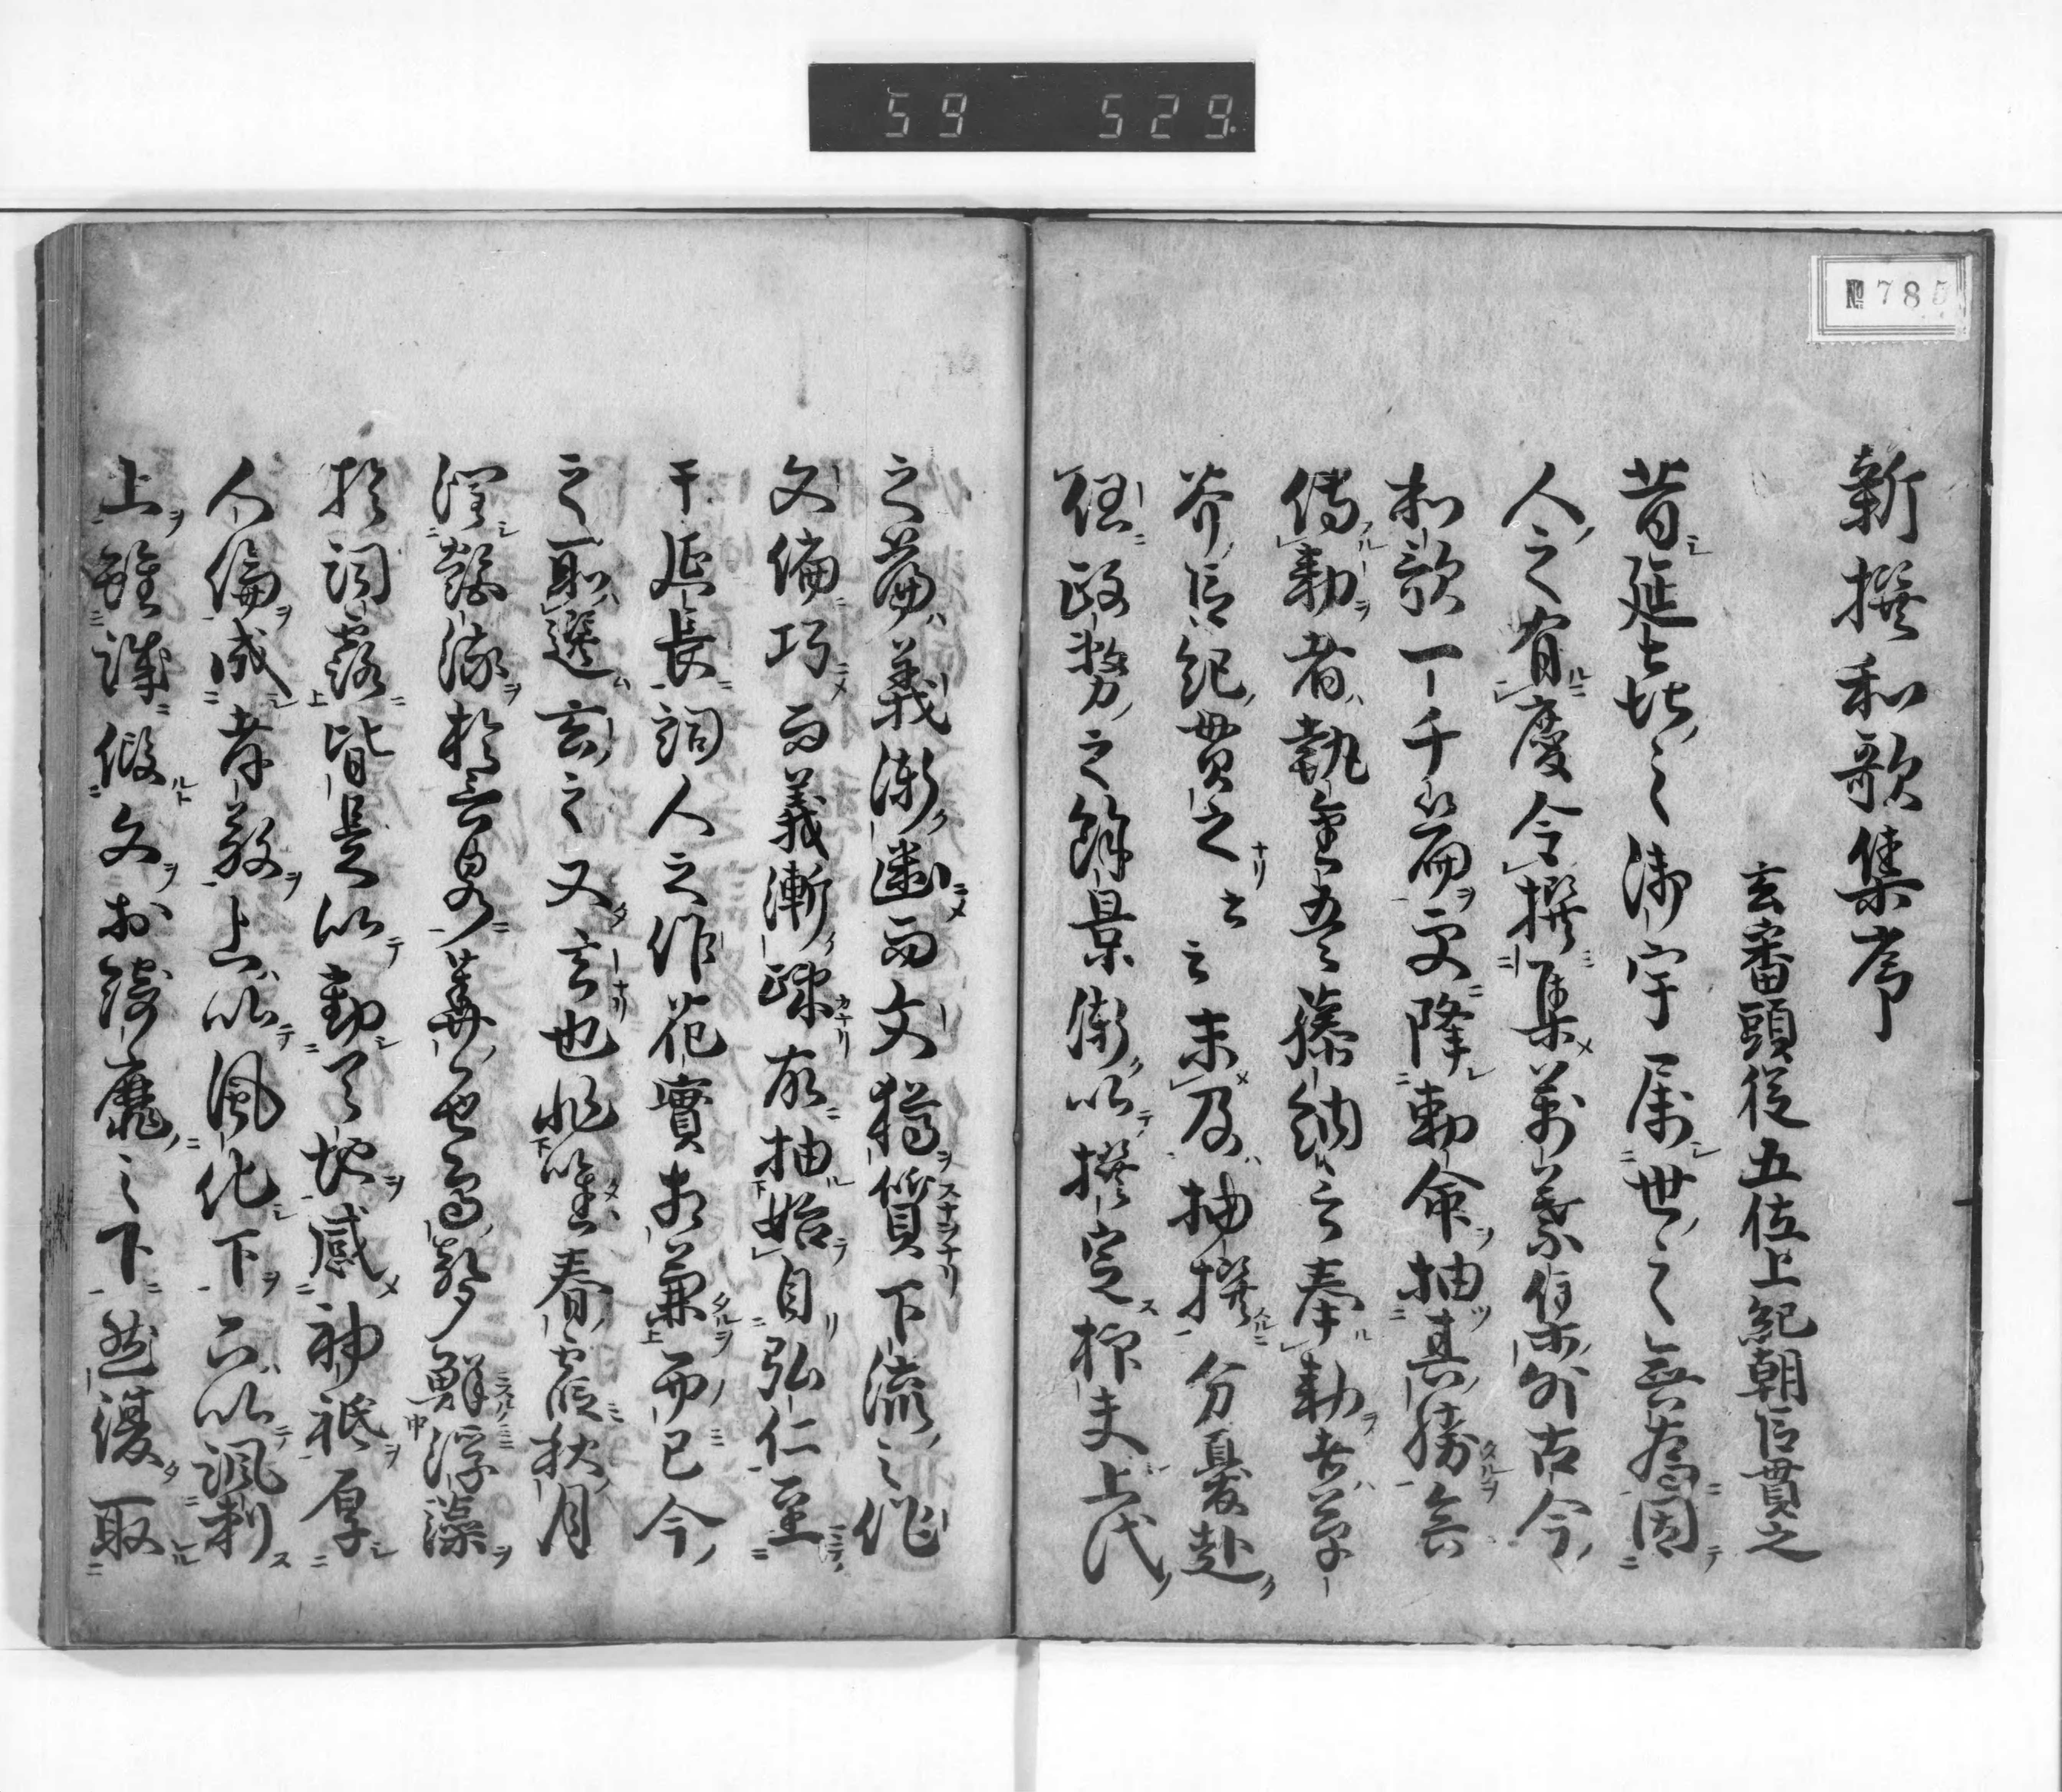 59 529
№785
新撰和歌集序
玄番頭従五位上紀朝臣貫之
昔延喜之御宇属世之無為因
人之有慶令撰集万葉集外古今
和歌一千篇更降勅命抽其勝矣
傳勅者執金吾藤納言奉勅者草
芥臣紀貫之云云未及抽撰分憂赴
任政務之餘景漸以撰定抑夫上代
之篇義漸幽而文猶質下流之作
文偏巧而義漸疎故抽始自弘仁至
于延長詞人之作花實相兼而已今
之所選玄之又玄也非唯春霞秋月
潤艶流於言泉華色鳥聲鮮浮藻
於詞露皆是以動天地感神祇厚
人倫成孝敬上以風化下下以諷刺
上雖誠假文於綺靡之下然復取